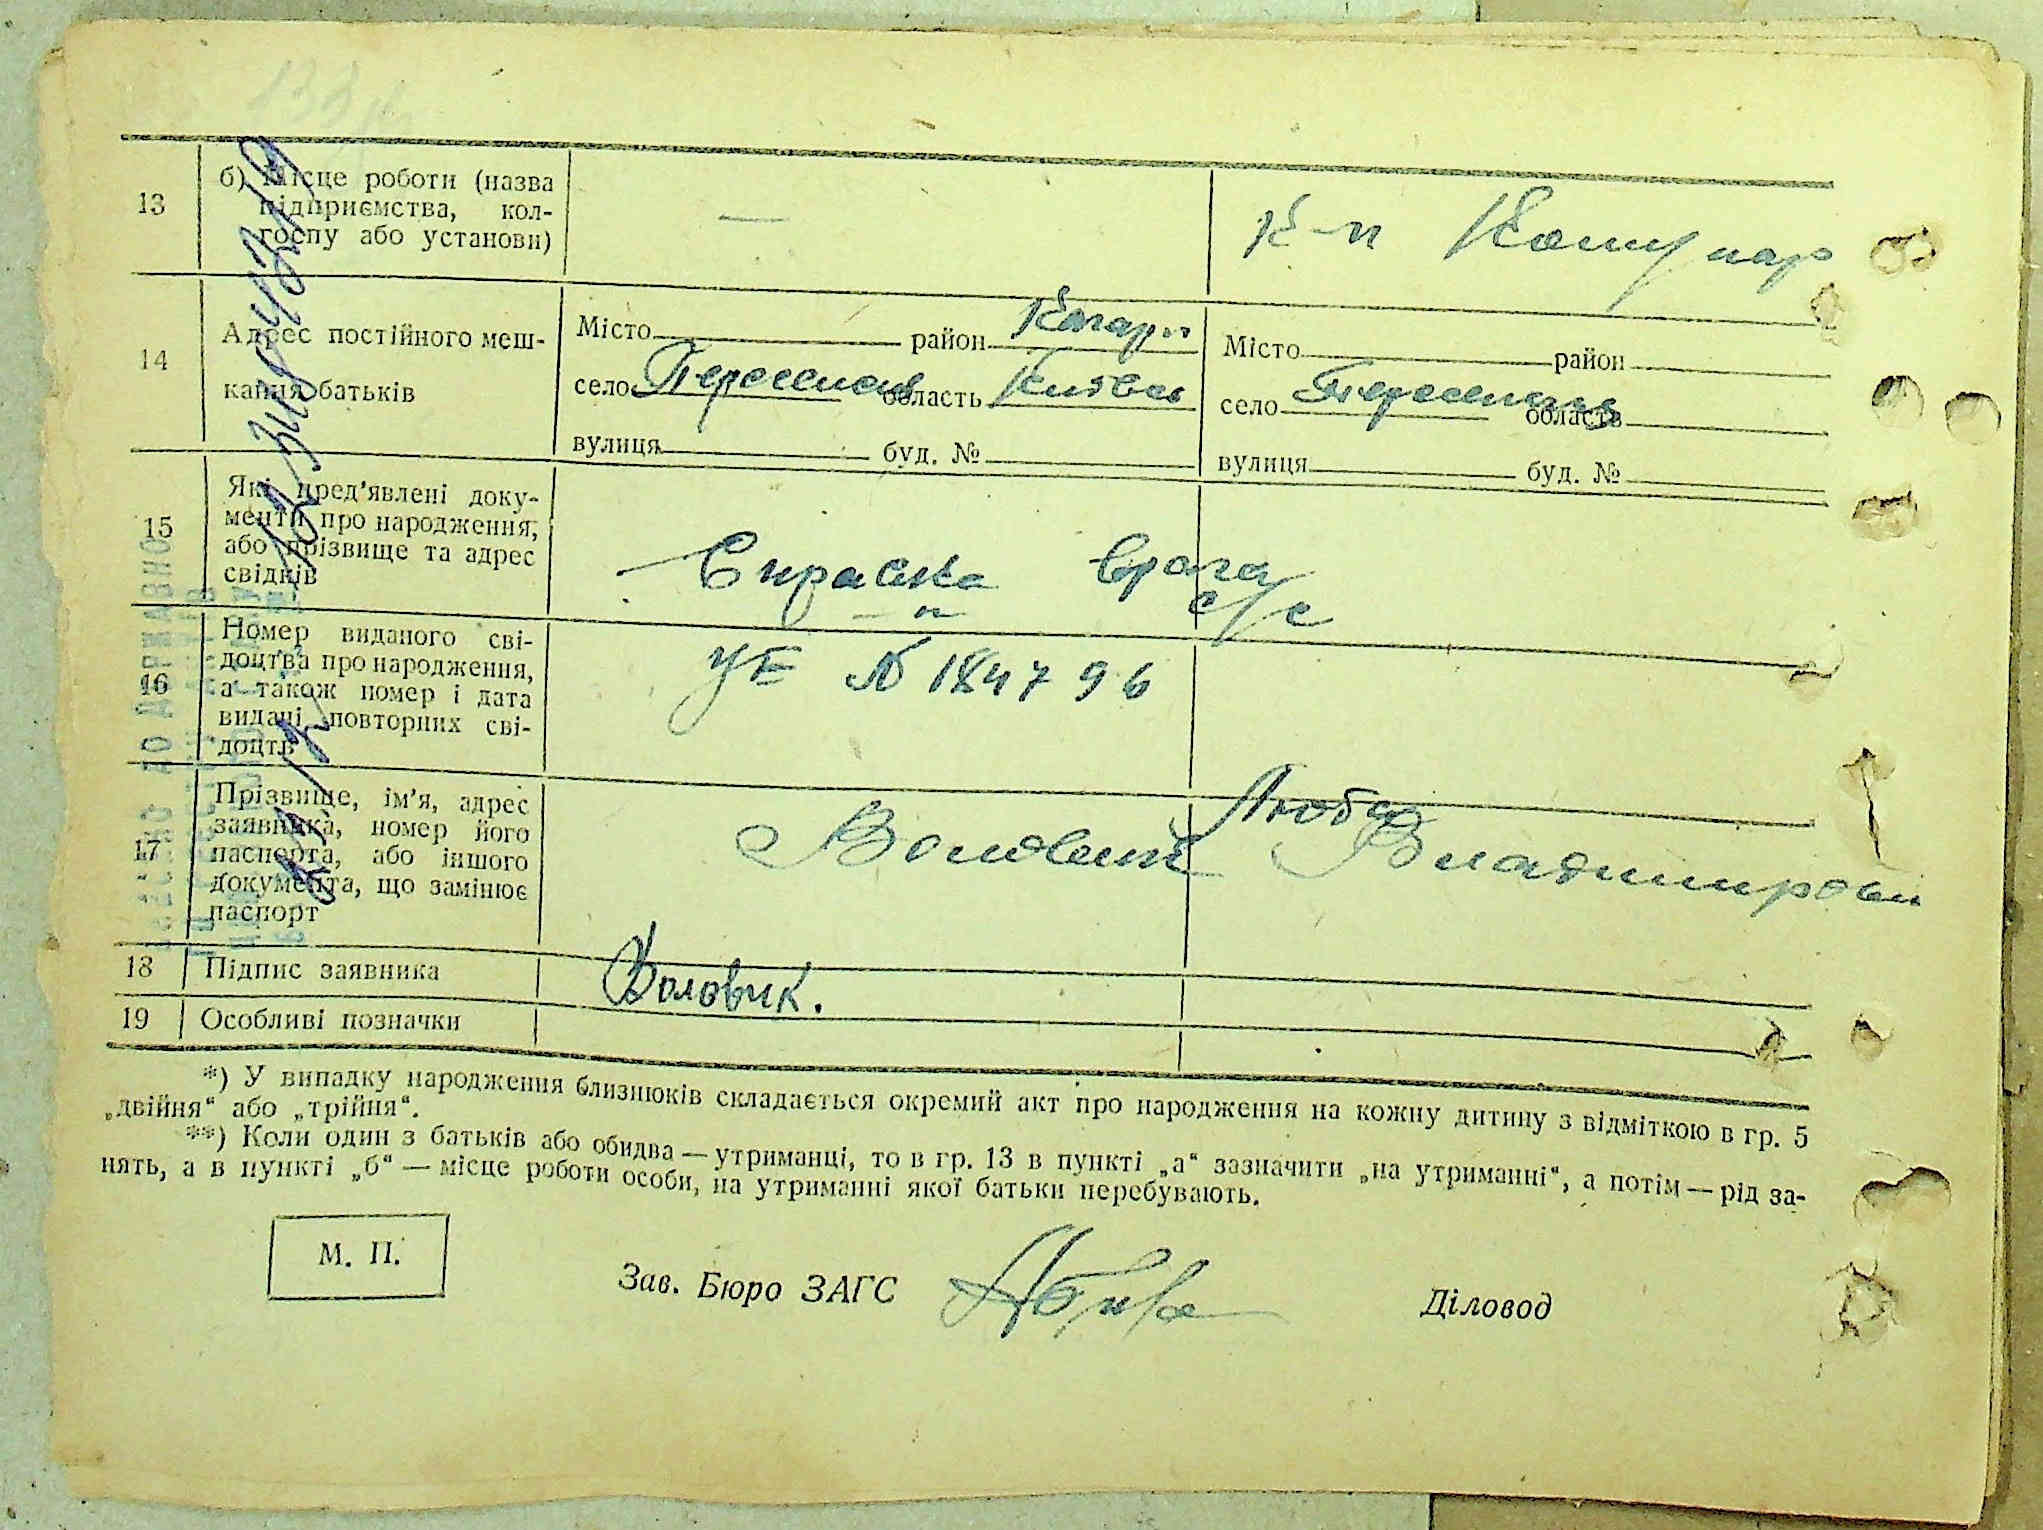 13
б) Місце роботи (назва
підприємства, кол-
госпу або установи)
—
к-п Комунар
14
Адрес постійного меш-
кання батьків
Місто район Кагарл
село Переселень область Київськ
вулиця буд. №
Місто район
село Переселень область
вулиця буд. №
15
Які пред'явлені доку-
менти про народження,
або прізвище та адрес
свідків
Справка врача
— " — с/с
16
Номер виданого сві-
доцтва про народження,
а також номер і дата
видачі повторних сві-
доцтв
УЕ № 184796
17
Прізвище, ім'я, адрес
заявника, номер його
паспорта, або іншого
документа, що замінює
паспорт
Люба
Воловик Владимиров
18
Підпис заявника
Воловик.
19
Особливі позначки
*) У випадку народження близнюків складається окремий акт про народження на кожну дитину з відміткою в гр. 5
„двійня“ або „трійня“.
**) Коли один з батьків або обидва — утриманці, то в гр. 13 в пункті „а“ зазначити „на утриманні“, а потім — рід за-
нять, а в пункті „б“ — місце роботи особи, на утриманні якої батьки перебувають.
М. П.
Зав. Бюро ЗАГС
Діловод